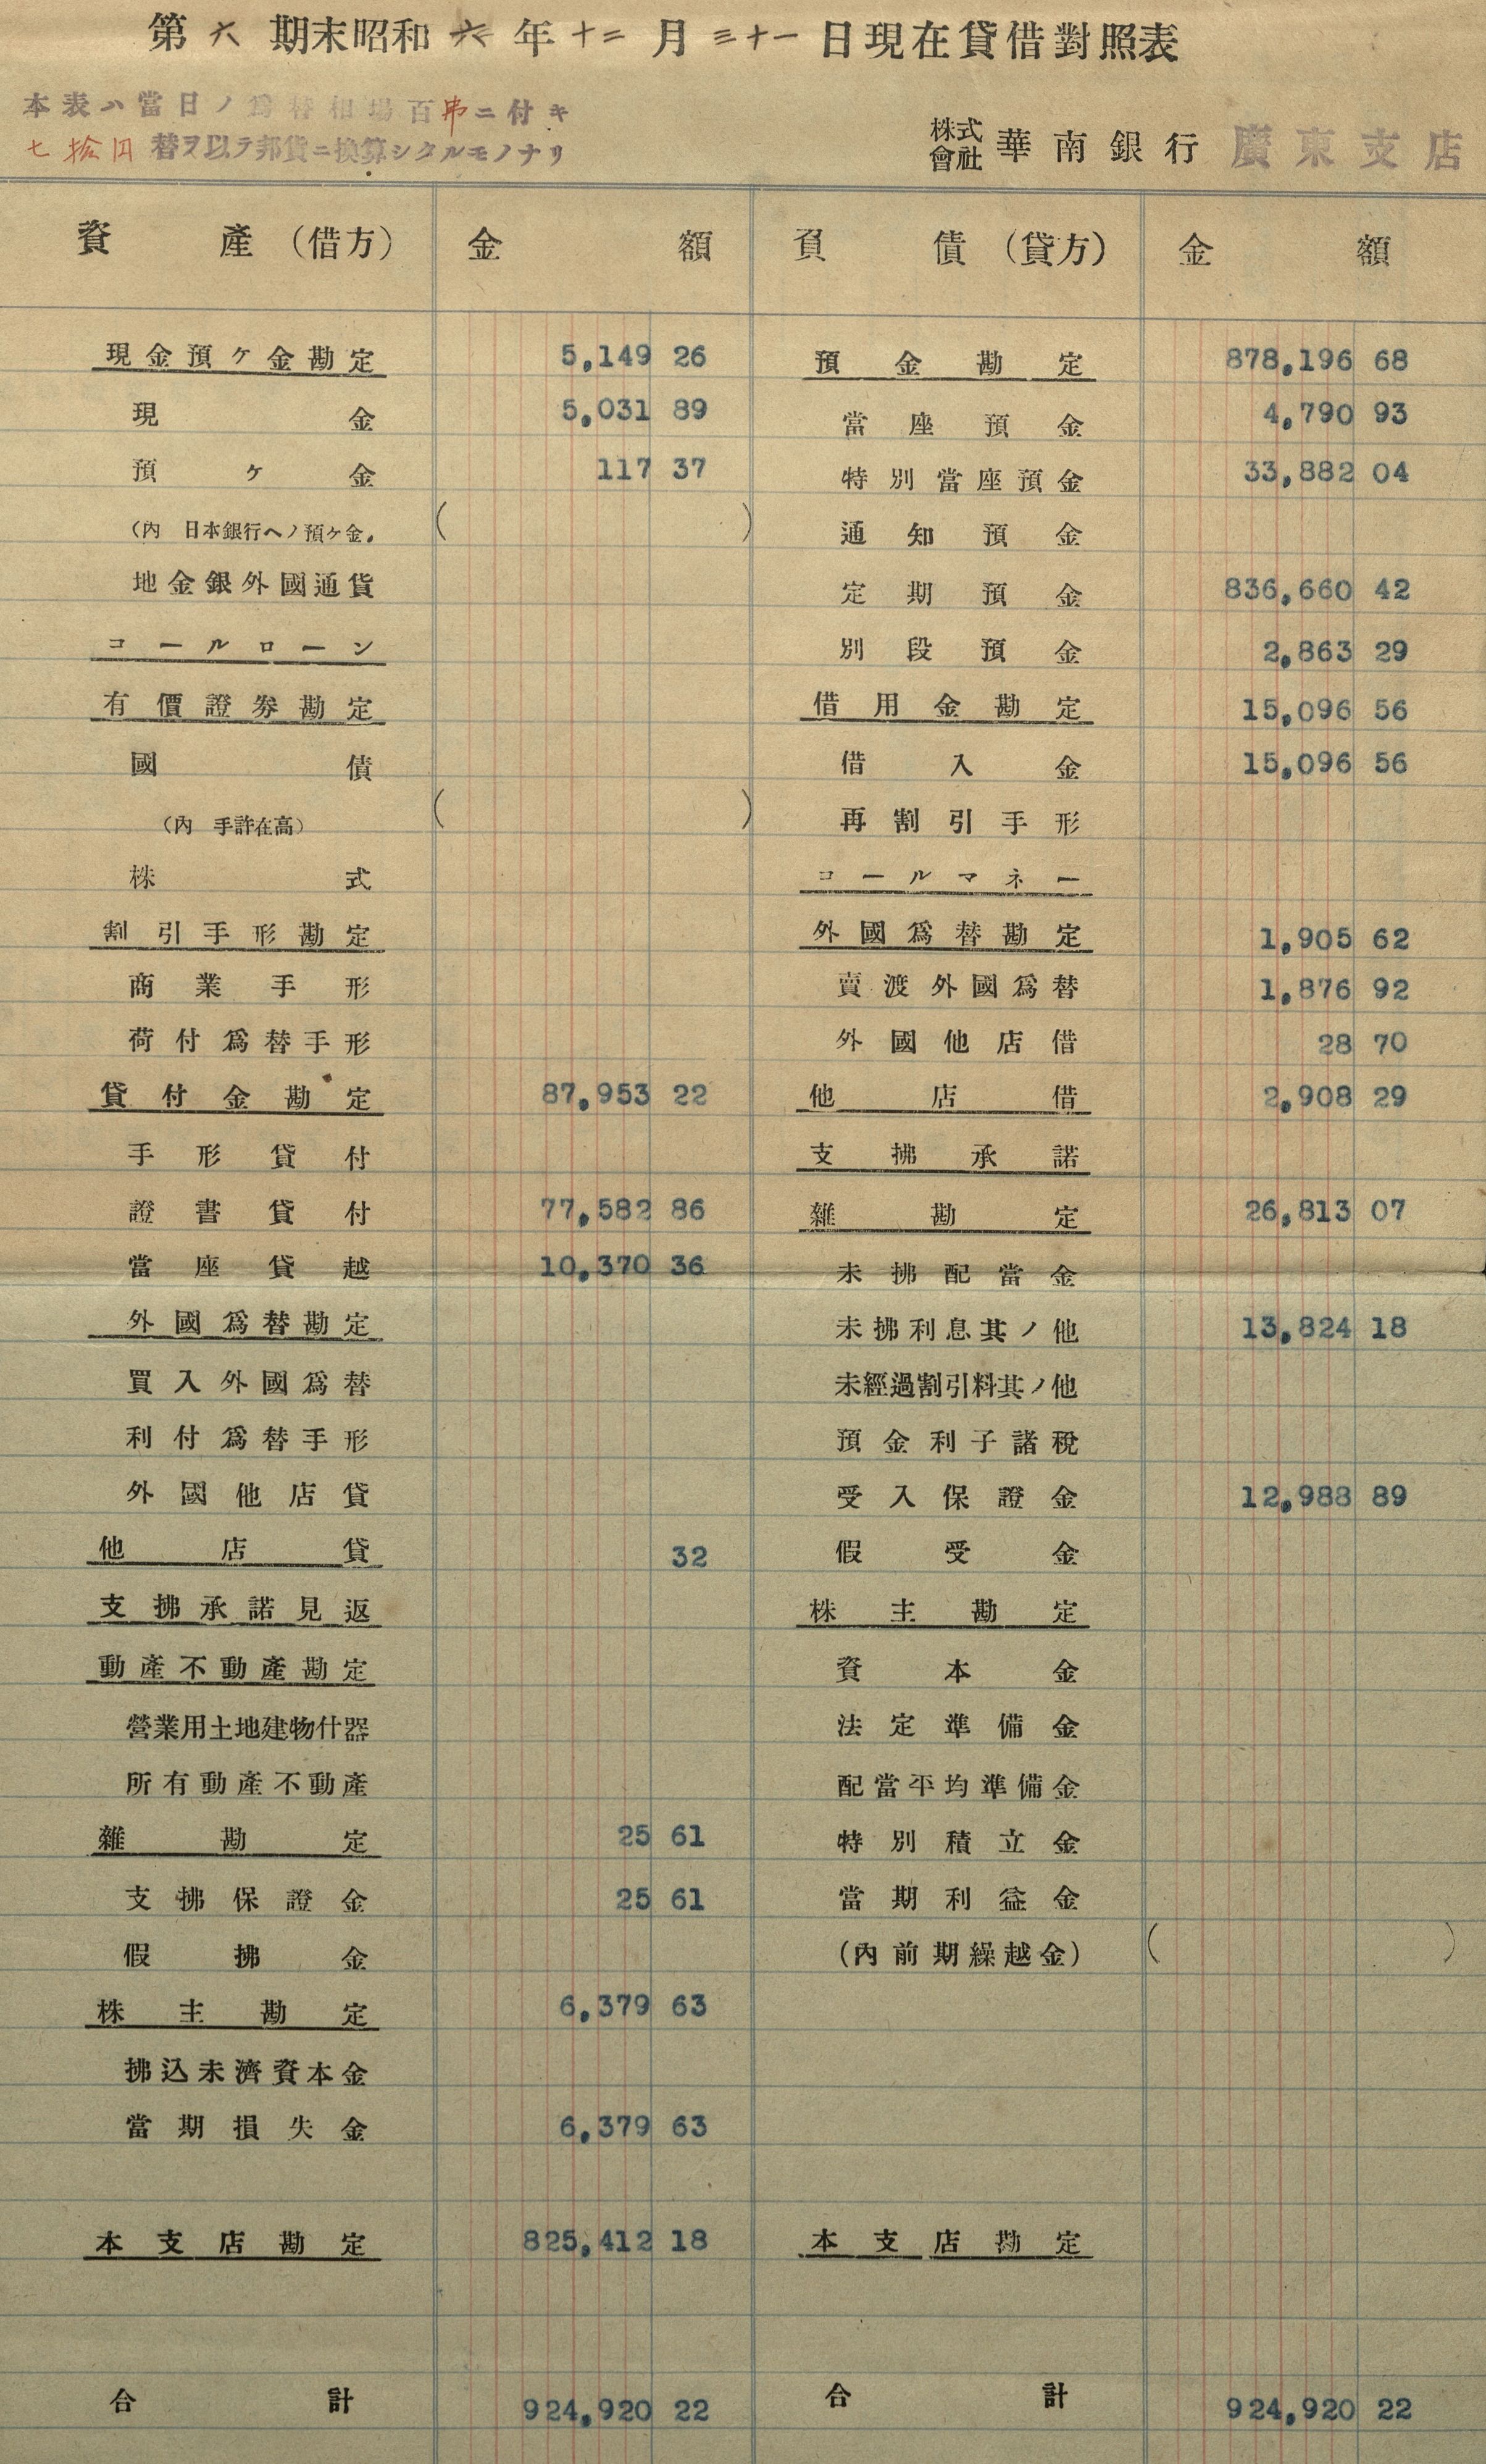 第六期末昭和六年十二月三十一日現在貸借對照表
本表ハ當日ノ爲替相場百弗ニ付キ
七拾円替ヲ以テ邦貨ニ換算シタルモノナリ
株式會社 華南銀行 廣東支店
資產(借方) 金額 負債(貸方) 金額
現金預ケ金勘定 5,149 26 預金勘定 878,196 68
現金 5,031 89 當座預金 4,790 93
預ケ金 117 37 特別當座預金 33,882 04
(內 日本銀行ヘノ預ケ金) ( ) 通知預金
地金銀外國通貨 定期預金 836,660 42
コールローン 別段預金 2,863 29
有價證券勘定 借用金勘定 15,096 56
國債 借入金 15,096 56
(內 手許在高) ( ) 再割引手形
株式 コールマネー
割引手形勘定 外國爲替勘定 1,905 62
商業手形 賣渡外國爲替 1,876 92
荷付爲替手形 外國他店借 28 70
貸付金勘定 87,953 22 他店借 2,908 29
手形貸付 支拂承諾
證書貸付 77,582 86 雜勘定 26,813 07
當座貸越 10,370 36 未拂配當金
外國爲替勘定 未拂利息其ノ他 13,824 18
買入外國爲替 未經過割引料其ノ他
利付爲替手形 預金利子諸稅
外國他店貸 受入保證金 12,988 89
他店貸 32 假受金
支拂承諾見返 株主勘定
動產不動產勘定 資本金
營業用土地建物什器 法定準備金
所有動產不動產 配當平均準備金
雜勘定 25 61 特別積立金
支拂保證金 25 61 當期利益金
假拂金 (內前期繰越金) ( )
株主勘定 6,379 63
拂込未濟資本金
當期損失金 6,379 63
本支店勘定 825,412 18 本支店勘定
合計 924,920 22 合計 924,920 22